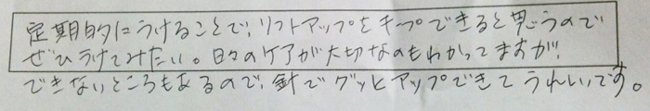 定期的にうけることで、リフトアップをキープできると思うので
ぜひうけてみたい。日々のケアが大切なのもわかってますが、
できないところもあるので、針でグッとアップできてうれしいです。